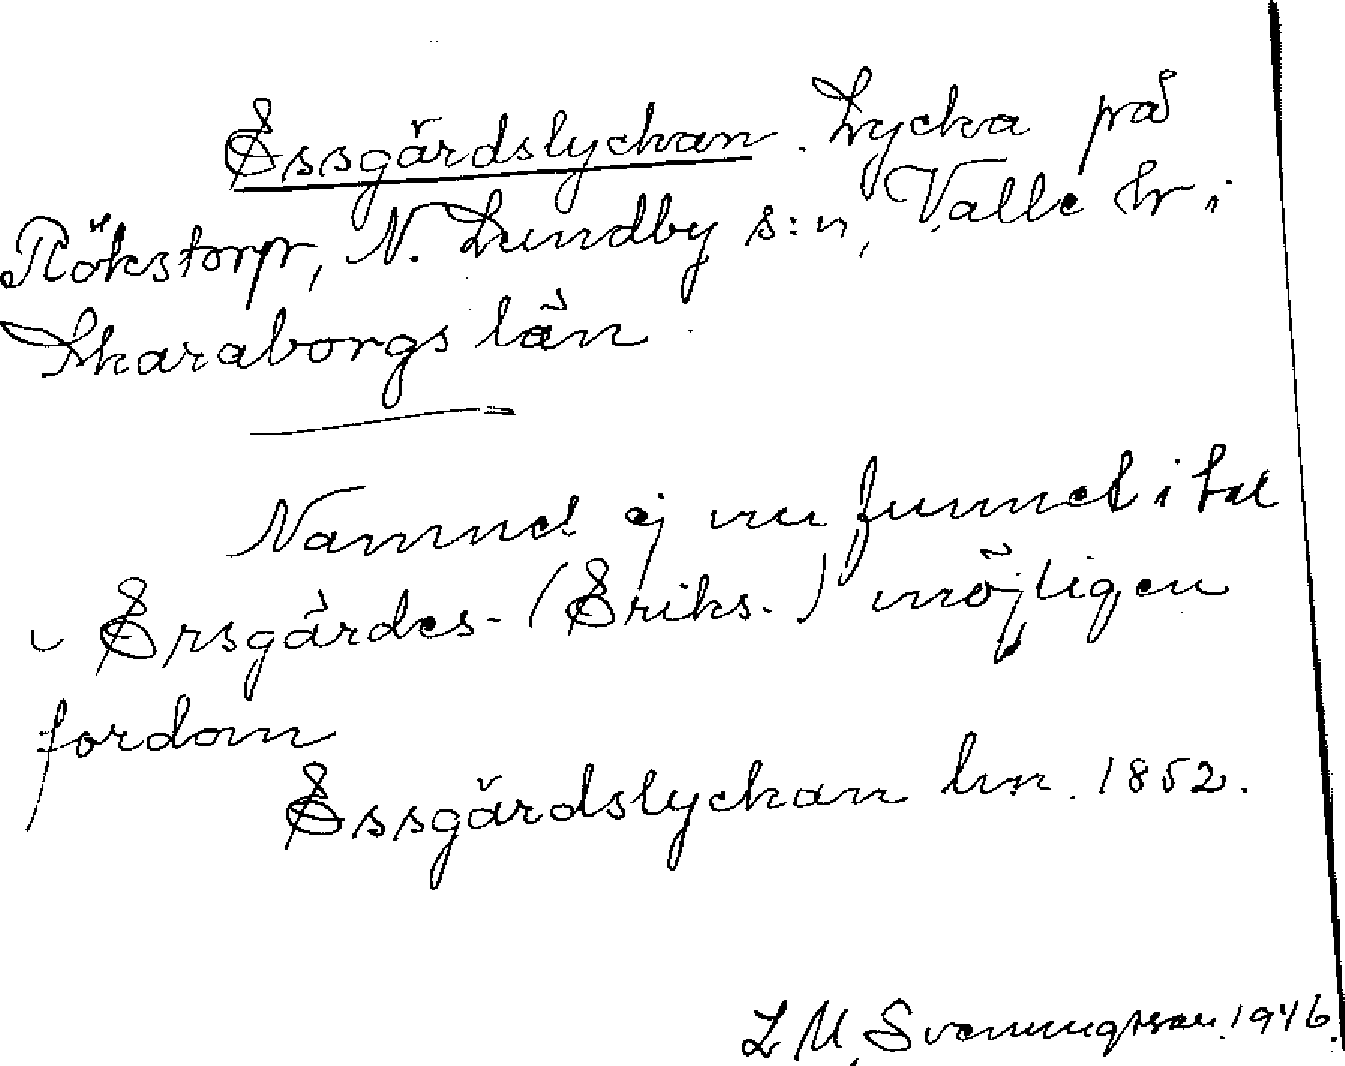 Essgårdslyckan. Lycka på
Rökstorp, N. Lundby s:n, Valle hr i
Skaraborgs län
Namnet ej nu funnet i tal
Ersgårdes- (Eriks-) möjligen
fordom
Essgårdslyckan hm. 1852.
L M, Svenningsson. 1946.